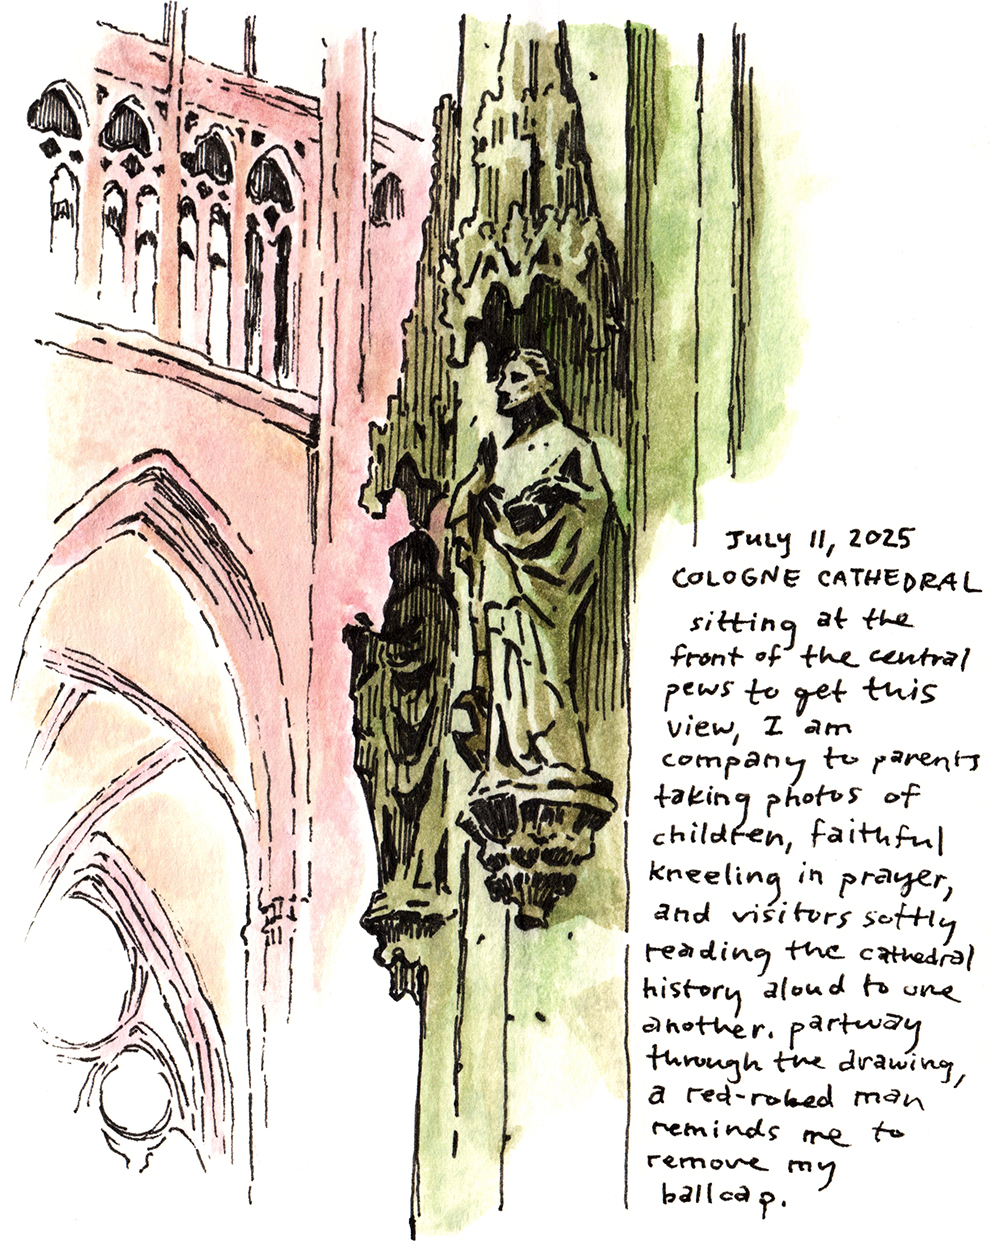 July 11, 2025
COLOGNE CATHEDRAL
sitting at the
front of the central
pews to get this
view, I am
company to parents
taking photos of
children, faithful
kneeling in prayer,
and visitors softly
reading the cathedral
history aloud to one
another. partway
through the drawing,
a red-robed man
reminds me to
remove my
ballcap.